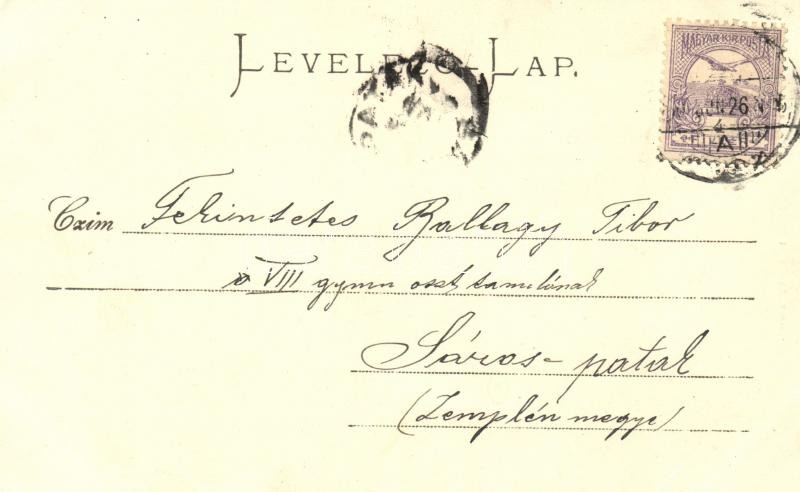 LEVELEZŐ-LAP.
MAGYAR KIR. POSTA
26
4
Czim Tekintetes Ballagy Tibor
VIII gymn oszt tanulónak
Sáros-patak
(Zemplén megye)